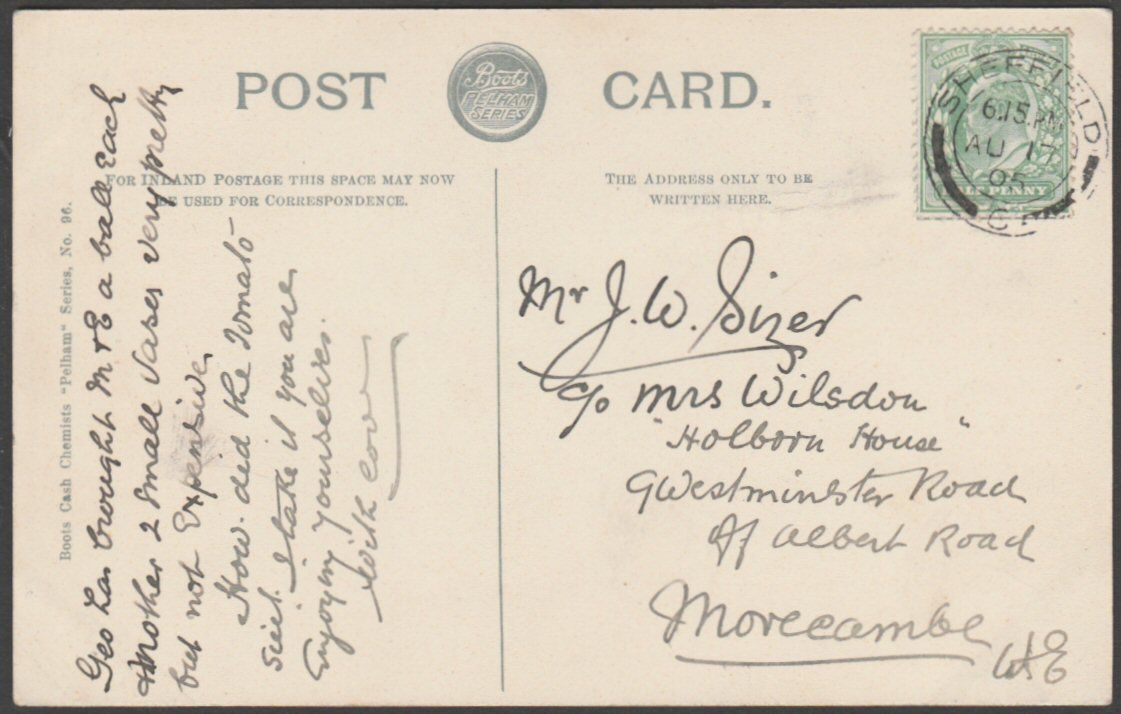 POST CARD.
Boots
PELHAM
SERIES
FOR INLAND POSTAGE THIS SPACE MAY NOW
BE USED FOR CORRESPONDENCE.
THE ADDRESS ONLY TO BE
WRITTEN HERE.
Boots Cash Chemists "Pelham" Series, No. 96.
Geo has brought M & E a ball each
& Mother 2 small vases very pretty
but not expensive
How did the Tomato
suit. I take it you are
enjoying yourselves.
With love
POSTAGE
HALF PENNY
SHEFFIELD
6.15 PM
AU 17
05
Mr J. W. Sizer
c/o Mrs Wilsdon
"Holborn House"
9 Westminster Road
Off Albert Road
Morecambe